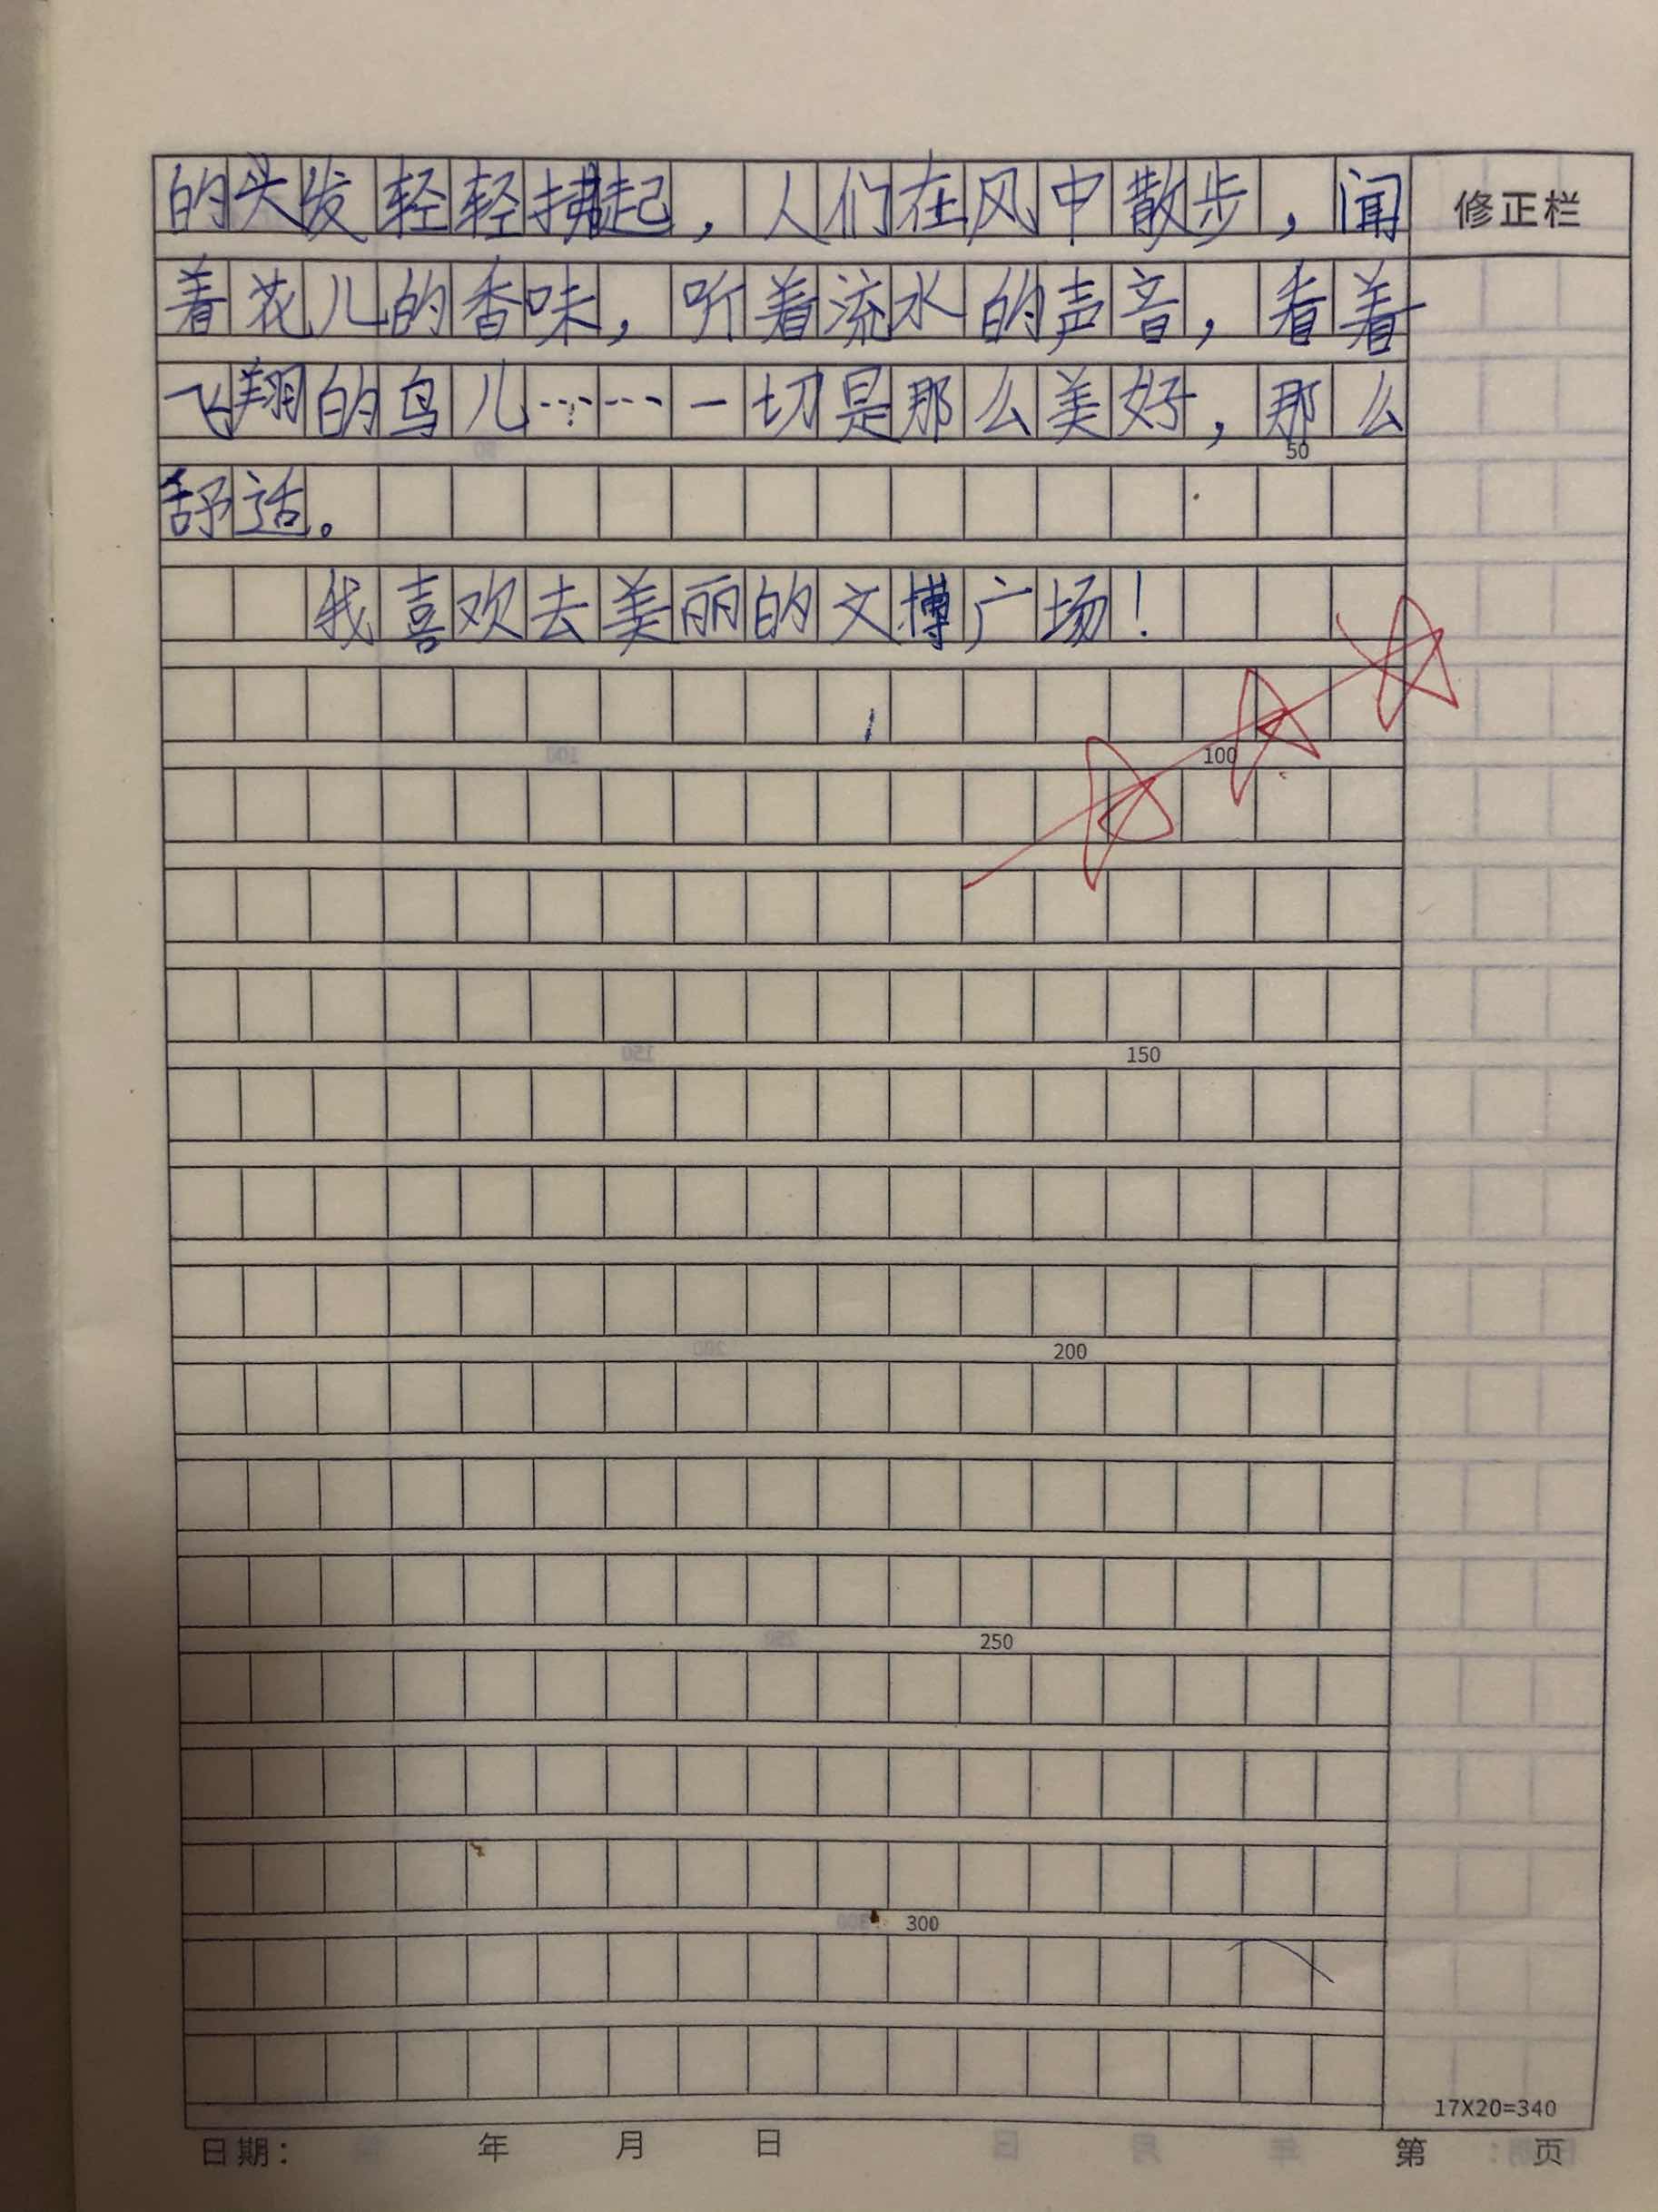 的头发轻轻拂起，人们在风中散步，闻
修正栏
着花儿的香味，听着流水的声音，看着
飞翔的鸟儿……一切是那么美好，那么
50
舒适。
我喜欢去美丽的文博广场！
100
150
200
250
300
17X20=340
日期： 年 月 日 第 页